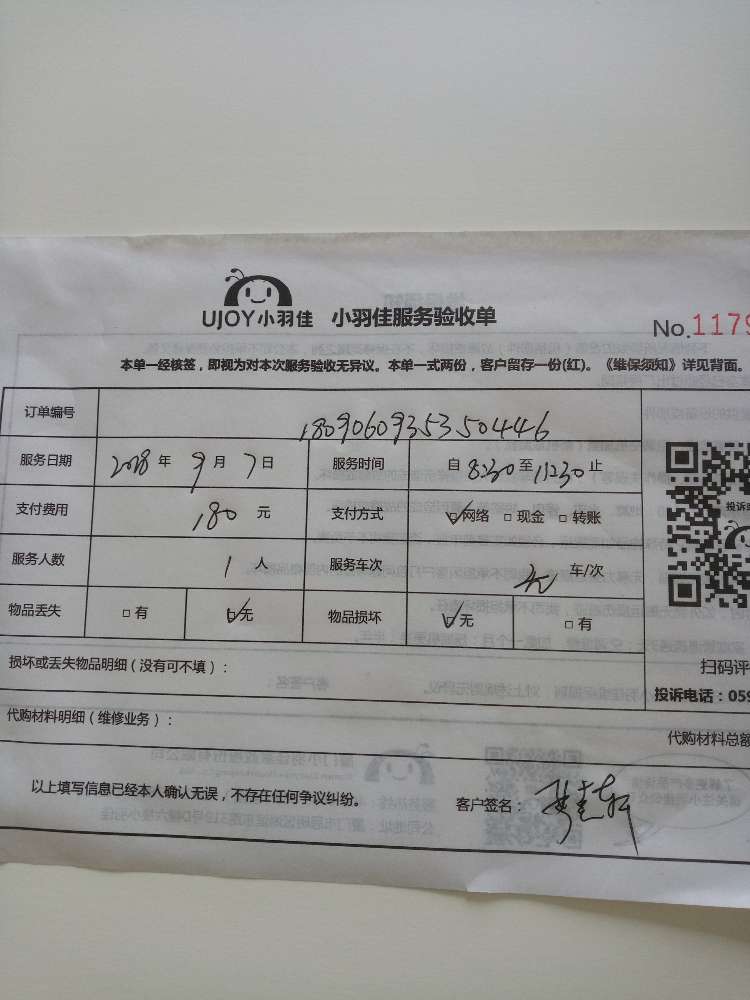 UJOY小羽佳 小羽佳服务验收单
No.1179
本单一经核签，即视为对本次服务验收无异议。本单一式两份，客户留存一份(红)。《维保须知》详见背面。
订单编号 180906093535 0446
服务日期 2018 年 9 月 7 日 服务时间 自 8:30 至 11:30 止
支付费用 180 元 支付方式 ☑网络 □现金 □转账
服务人数 1 人 服务车次 无 车/次
物品丢失 □有 ☑无 物品损坏 ☑无 □有
投诉
损坏或丢失物品明细（没有可不填）：
扫码评
投诉电话：059
代购材料明细（维修业务）：
代购材料总额
以上填写信息已经本人确认无误，不存在任何争议纠纷。
客户签名：